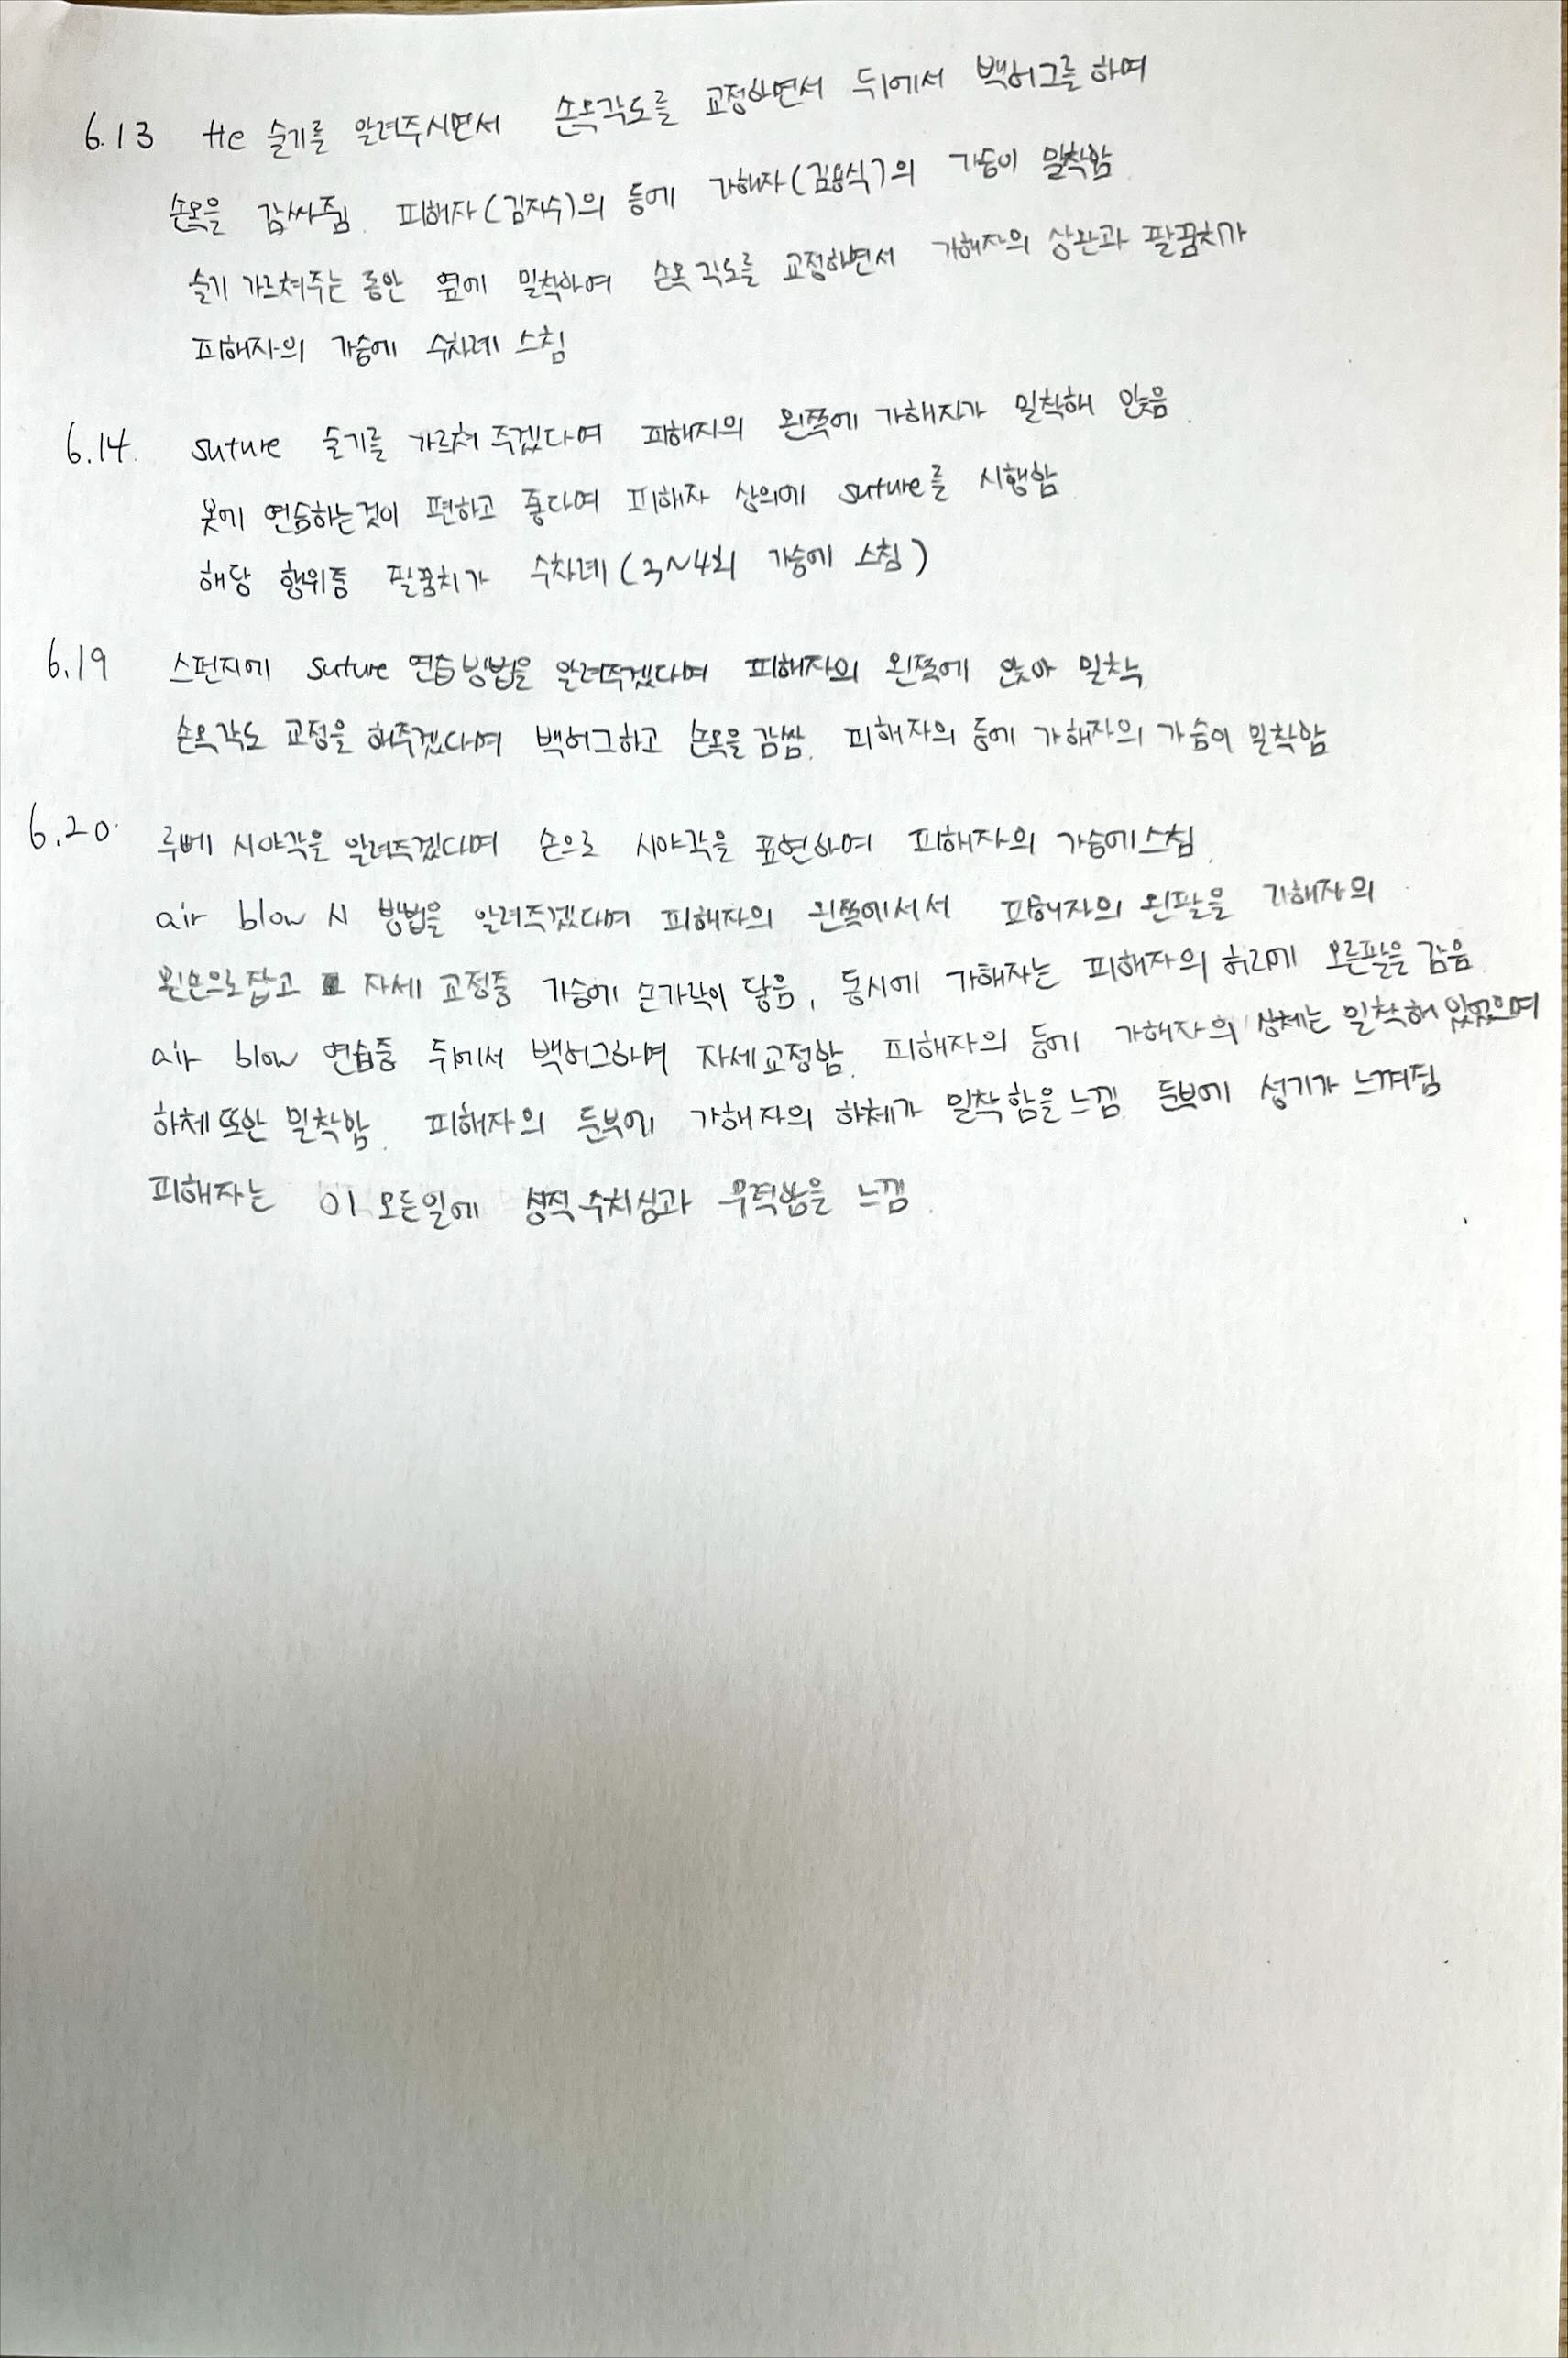 6.13 He 술기를 알려주시면서 손목각도를 교정하면서 뒤에서 백허그를 하며
손목을 감싸줌. 피해자(김지수)의 등에 가해자(김용식)의 가슴이 밀착함
술기 가르쳐주는 동안 옆에 밀착하여 손목 각도를 교정하면서 가해자의 상완과 팔꿈치가
피해자의 가슴에 수차례 스침
6.14. suture 술기를 가르쳐 주겠다며 피해자의 왼쪽에 가해자가 밀착해 앉음.
옷에 연습하는것이 편하고 좋다며 피해자 상의에 suture를 시행함
해당 행위중 팔꿈치가 수차례(3~4회 가슴에 스침)
6.19 스펀지에 suture 연습방법을 알려주겠다며 피해자의 왼쪽에 앉아 밀착
손목각도 교정을 해주겠다며 백허그하고 손목을 감쌈. 피해자의 등에 가해자의 가슴이 밀착함
6.20. 루뻬 시야각을 알려주겠다며 손으로 시야각을 표현하며 피해자의 가슴에스침.
air blow 시 방법을 알려주겠다며 피해자의 왼쪽에서서 피해자의 왼팔을 가해자의
왼손으로잡고 자세 교정중 가슴에 손가락이 닿음, 동시에 가해자는 피해자의 허리에 오른팔을 감음
air blow 연습중 뒤에서 백허그하며 자세교정함. 피해자의 등에 가해자의 상체는 밀착해 있었으며
하체 또한 밀착함. 피해자의 둔부에 가해자의 하체가 밀착함을 느낌. 둔부에 성기가 느껴짐
피해자는 이 모든일에 성적 수치심과 무력함을 느낌.